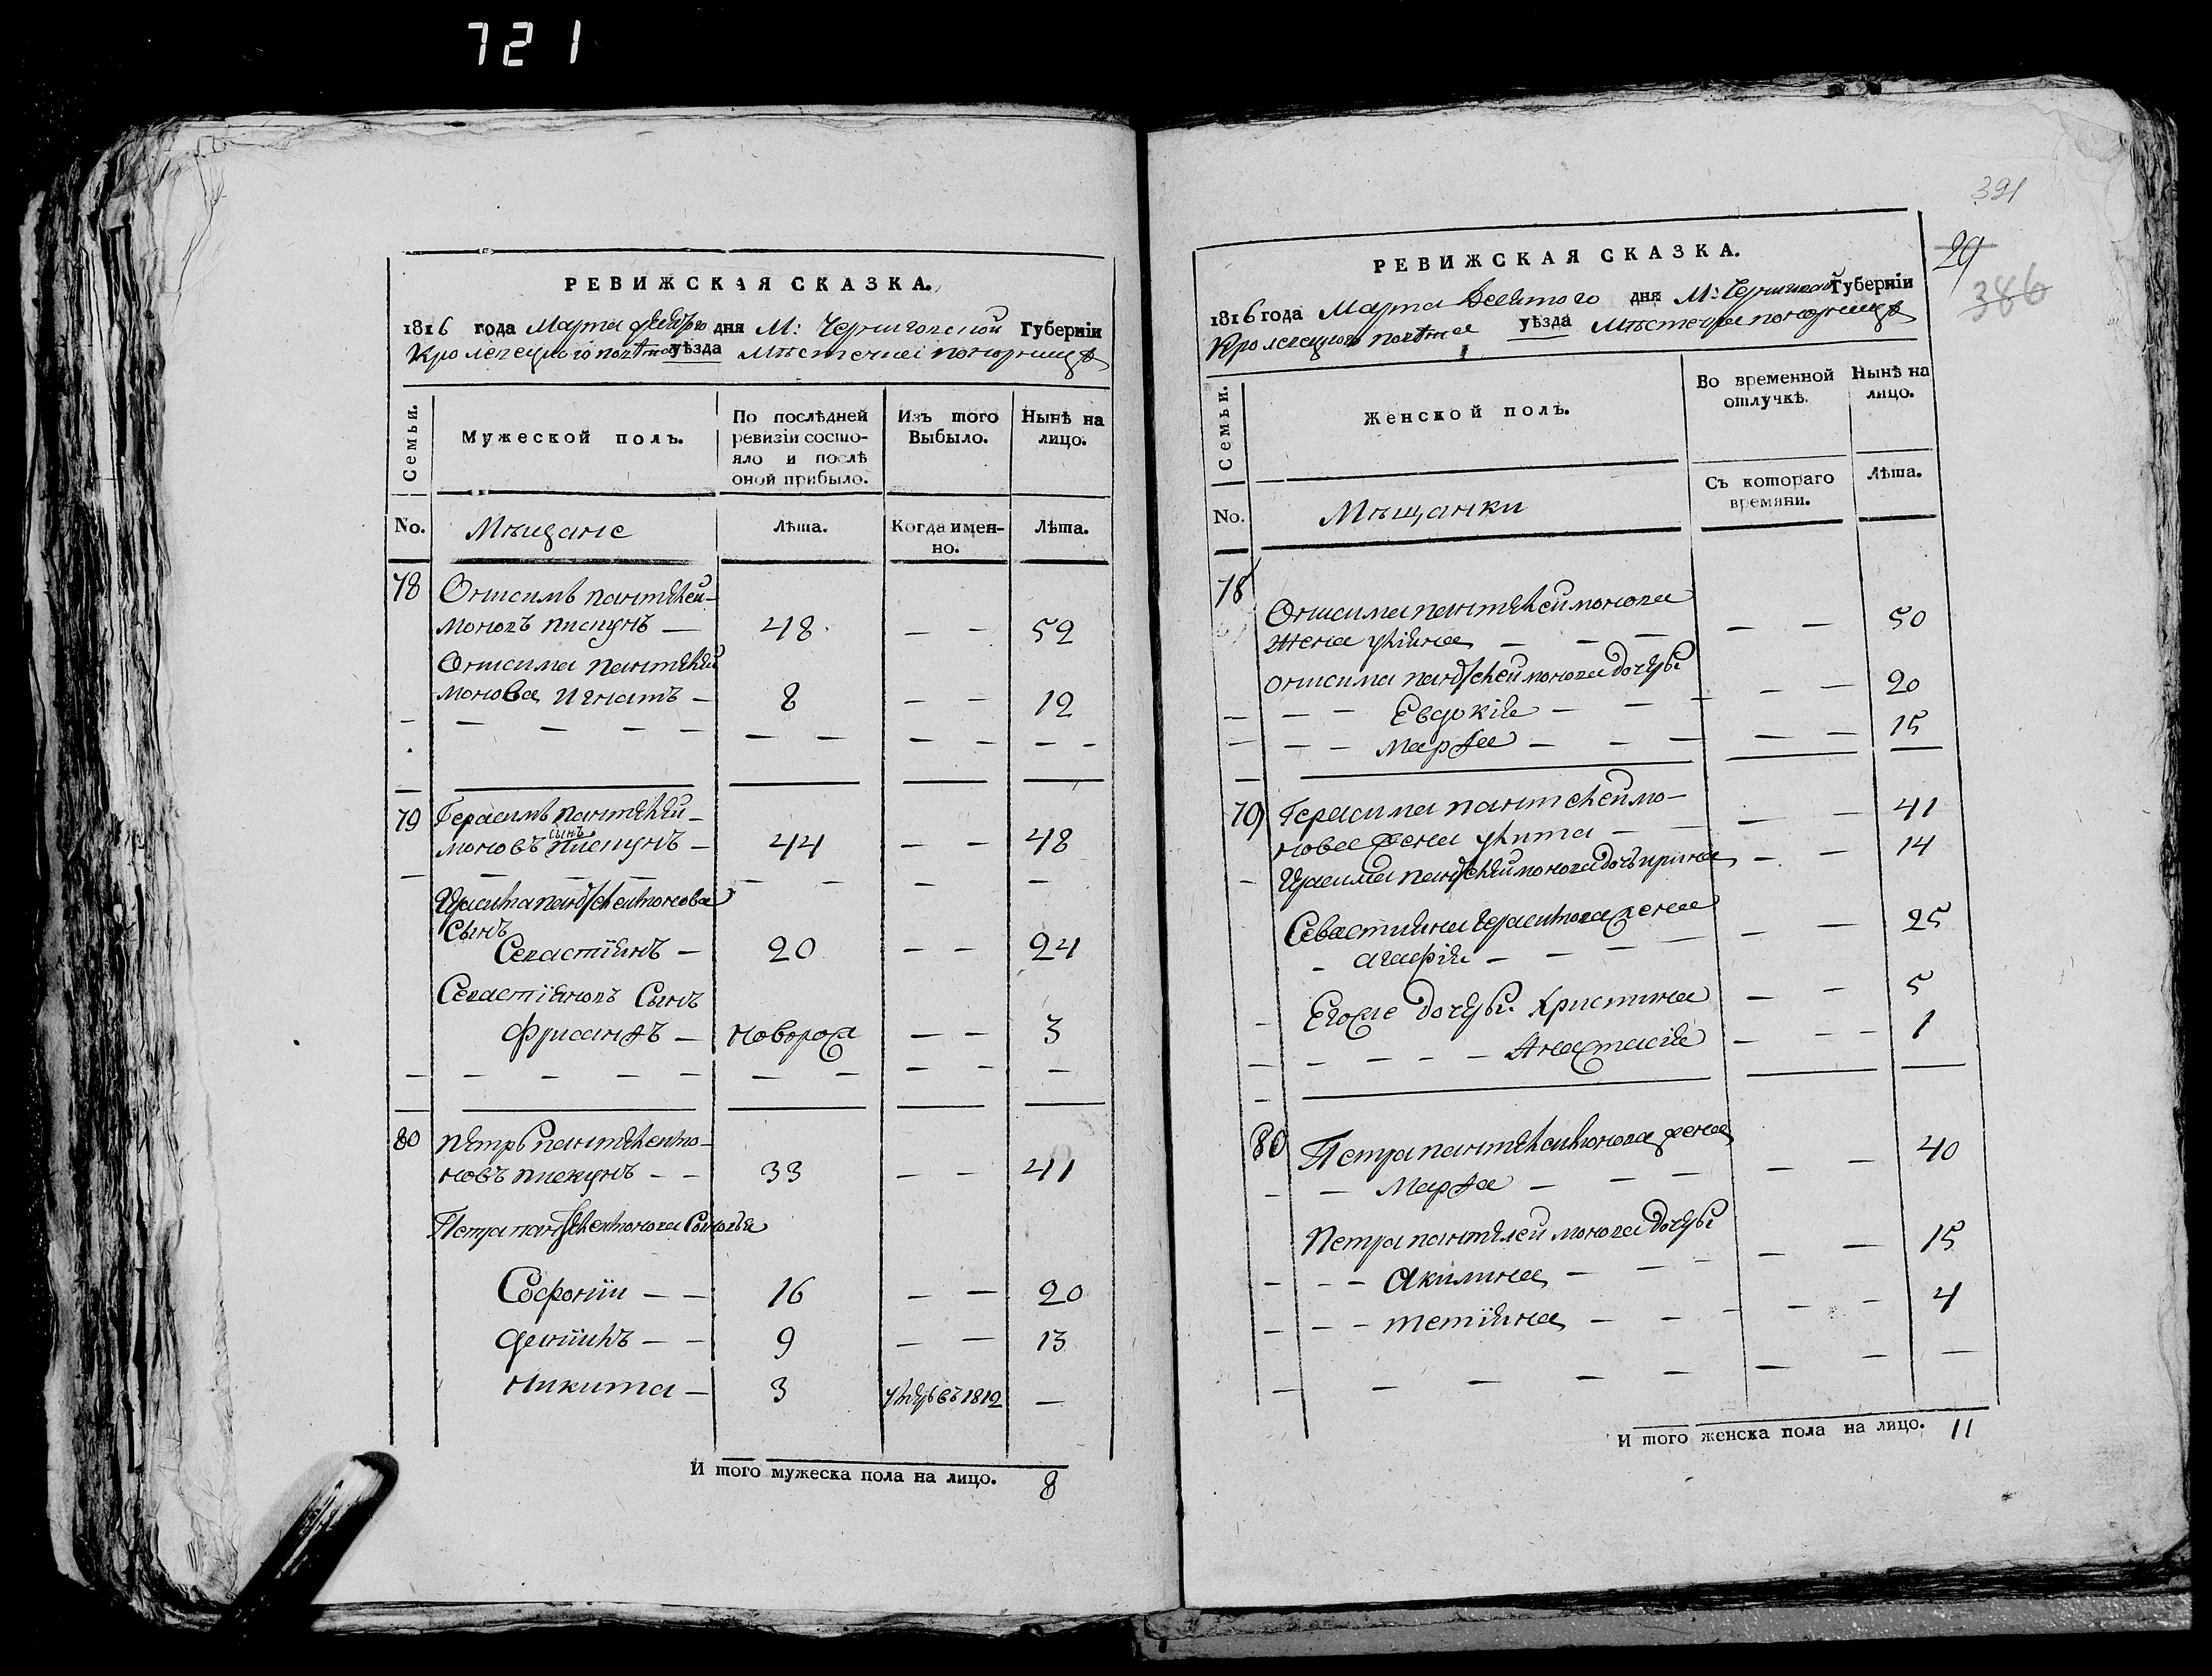 721
РЕВИЖСКАЯ СКАЗКА.
1816 года Марта десятого дня М: Черниговской Губерніи
Кролевецкого повѣта уѣзда Мѣстечка понорницѣ
Семьи.
Мужеской полъ.
По послѣдней ревизіи состояло и послѣ оной прибыло.
Изъ того Выбыло.
Нынѣ на лицо.
No.
Мѣщане
Лѣта.
Когда именно.
Лѣта.
78 Онисимъ пантелей-
моновъ пискунъ — 48 — — 52
Онисима пантелей
монова Игнатъ — 8 — — 12
79 Герасимъ пантелей-
сынъ
моновъ пискунъ — 44 — — 48
Герасима пантелеимонова
Сынъ
Севастіянъ — 20 — — 24
Севастіяновъ Сынъ
— новорож — — 3
80 петръ пантелеимо-
новъ пискунъ — — 33 — — 41
Петра пантелеимонова Сыновья
Софоній — — 16 — — 20
— — 9 — — 13
никита — 3 умеръ въ 1812 —
И того мужеска пола на лицо. 8
391
29
386
РЕВИЖСКАЯ СКАЗКА.
1816 года Марта десятого дня М: Черниговской Губерніи
Кролевецкого повѣта уѣзда Мѣстечка понорницѣ
Семьи.
Женской полъ.
Во временной отлучкѣ.
Нынѣ на лицо.
No.
Мѣщанки
Съ котораго времяни.
Лѣта.
78 Онисима пантелеймонова
жена улияна — — — — — 50
онисима пантелеймонова дочери
— — Евдокія — — — — — 20
— — марѳа — — — — — 15
79 Герасима пантелеймо-
нова жена — — — — 41
Герасима пантелеймонова дочь ирина — — 14
Севастияна Герасимова жена
— агафія — — — — — 25
Егоже дочери Христина — — 5
— — — — Анастасія — — — 1
80 Петра пантелеимонова жена
— — Марѳа — — — — — 40
Петра пантелеймонова дочери
— — — Акилина — — — — — 15
— — — тетіяна — — — — — 4
И того женска пола на лицо. 11